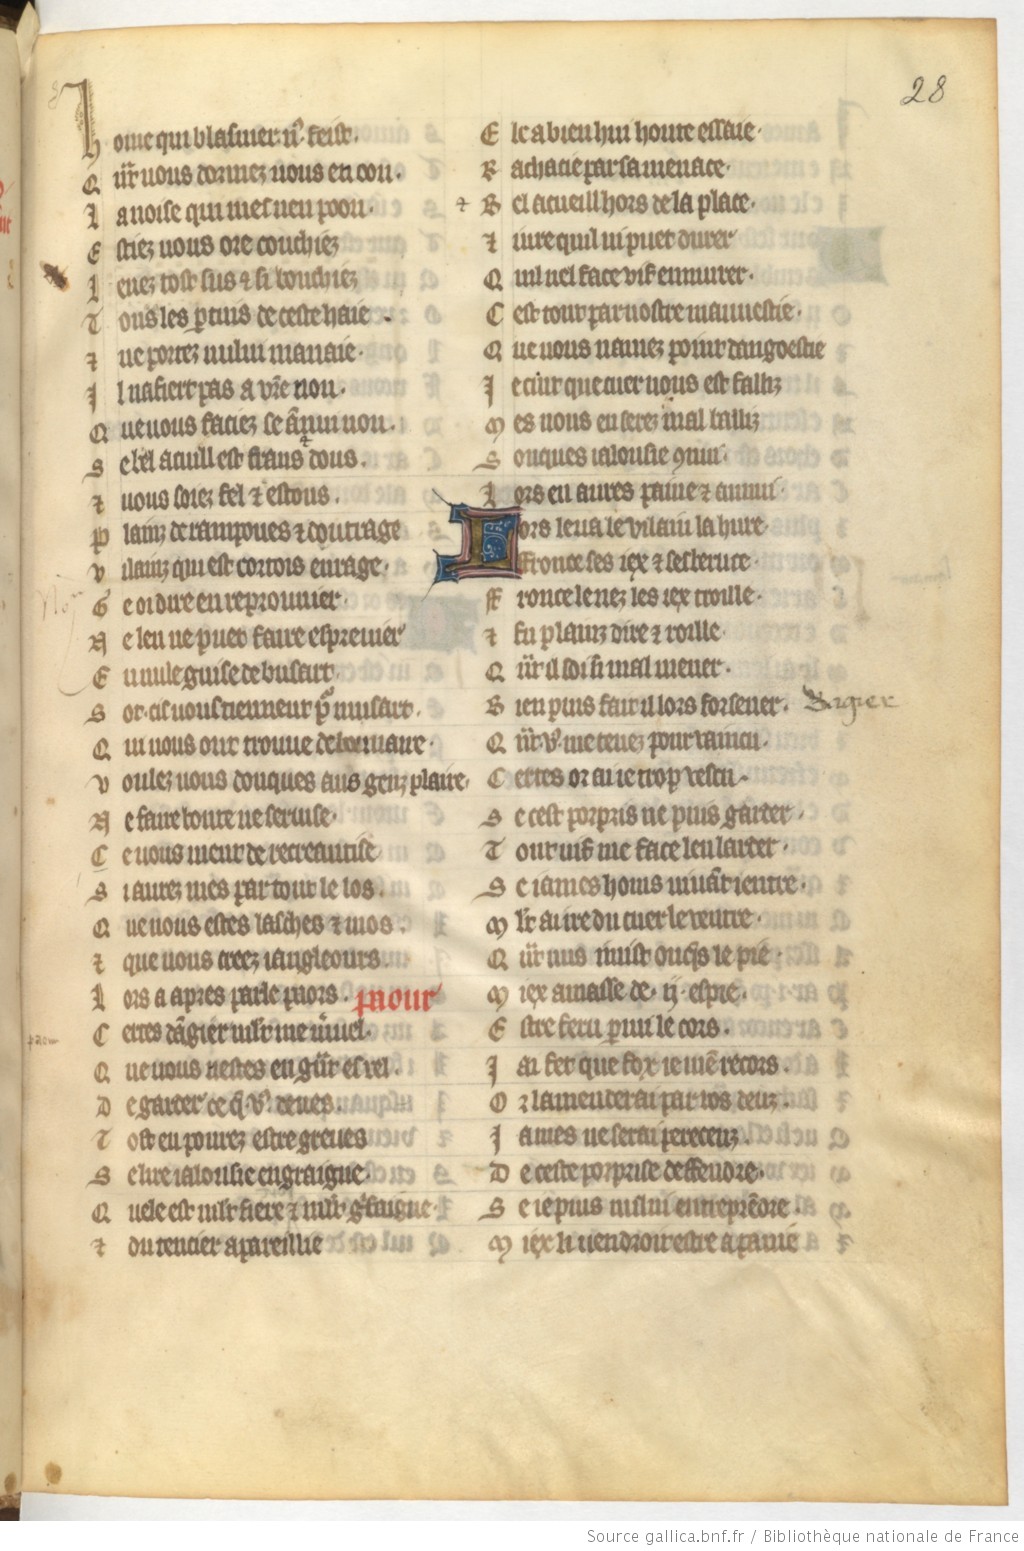 28
Home qui blasmer uous feist.
Qñt uous dormez nous en dou.
La noise qui met neu poou.
Estiez uous ore couchiez
Leuez tost sus & si bouchiez
Tous les ꝑtuis de ceste haie.
& ne portez nului manaie.
Il nafiert pas a vr̃e non.
Que uous faciez se anui non.
Se bel acuill est frans dous.
& uous soiez fel & estous.
Plainz de rampones & doutrage
Vilainz qui est cortois enrage.
Ce oi dire en reprouuier.
Ne len ne puet faire espreuier
En nule guise de busart.
Sor. cil uous tiennent pour musart.
Qui uous ont trouue debonnaire.
Voulez uous donques aus genz plaire.
Ne faire bonte ne seruise.
Ce uous muet de recreantise
Si aurez mes par tout le los.
Que uous estes lasches & mos.
& que uous creez iangleours.
Lors a apres parle paors. paour
Certes dãgier mlt me m̃uel.
Que uous nestes en gñt esuel.
De garder ce q̃ v9 deues.
Tost en pourez estre greues
Se lire ialousie engraigne.
Quele est mlt fiere & mlt g̃faigne.
& du tencier apareillie
Ele a bien hui honte essaie.
Kachacie par sa menace.
Bel acueill hors de la place.
& iure quil ni puet durer
Quil nel face vif enmurer.
Cest tout par nostre mauuestie.
Que uous nauez point dangoestie
Ie cuit que cuer uous est falliz
Mes uous en serez mal balliz
Souques ialousie 9nui.
Lors en aures paine & annui.
Lors leua le vilain la hure.
Effronce ses iex & seskeruce.
Fronce le nez les iex roille.
& fu plainz dire & roille.
Qñt il soi si mal mener.
Bien puis fait il lors forsener. Dangier
Qñt v9 me tenez pour vaincu.
Certes or ai ie trop vescu.
Se cest porpris ne puis garder.
Tout vif me face len larder.
Se iames homs uiuãt ientre.
Mlt ai ire du cuer le ventre.
Qñt nus i mist onq̃s le pie.
Miex amasse de .ij. espie.
Estre feru parmi le cors.
Iai fet que fox ie mẽ recors.
Or lamenderai par vos deuz.
Iames ne serai perecenz.
De ceste porprise deffendre.
Se ie puis nului entreprẽdre.
Miex li uendroit estre a pauie
Source gallica.bnf.fr / Bibliothèque nationale de France